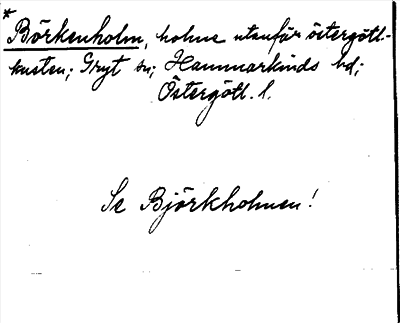 *
Börkenholm, holme utanför östergötl-
kusten; Gryt sn; Hammarkinds hd;
Östergötl. l.
Se Björkholmen!